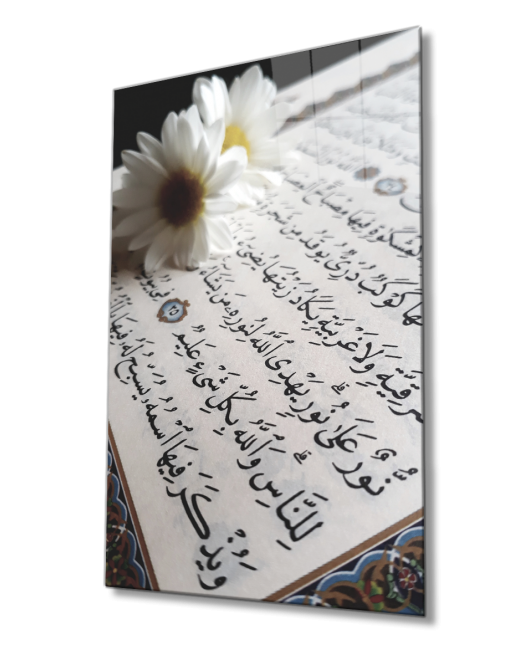 كَمِشْكٰوةٍ فِيهَا مِصْبَاحٌ
كَوْكَبٌ دُرِّىٌّ يُوقَدُ مِنْ شَجَرَ
رْقِيَّةٍ وَلَا غَرْبِيَّةٍ يَكَادُ زَيْتُهَا يُضِىءُ
نُورٌ عَلٰى نُورٍ يَهْدِى اللّٰهُ لِنُورِهِ مَنْ يَشَاءُ
لِلنَّاسِ وَاللّٰهُ بِكُلِّ شَىْءٍ عَلِيمٌ ٣٥ فِى بُيُوتٍ
وَيُذْكَرَ فِيهَا اسْمُهُ يُسَبِّحُ لَهُ فِيهَا